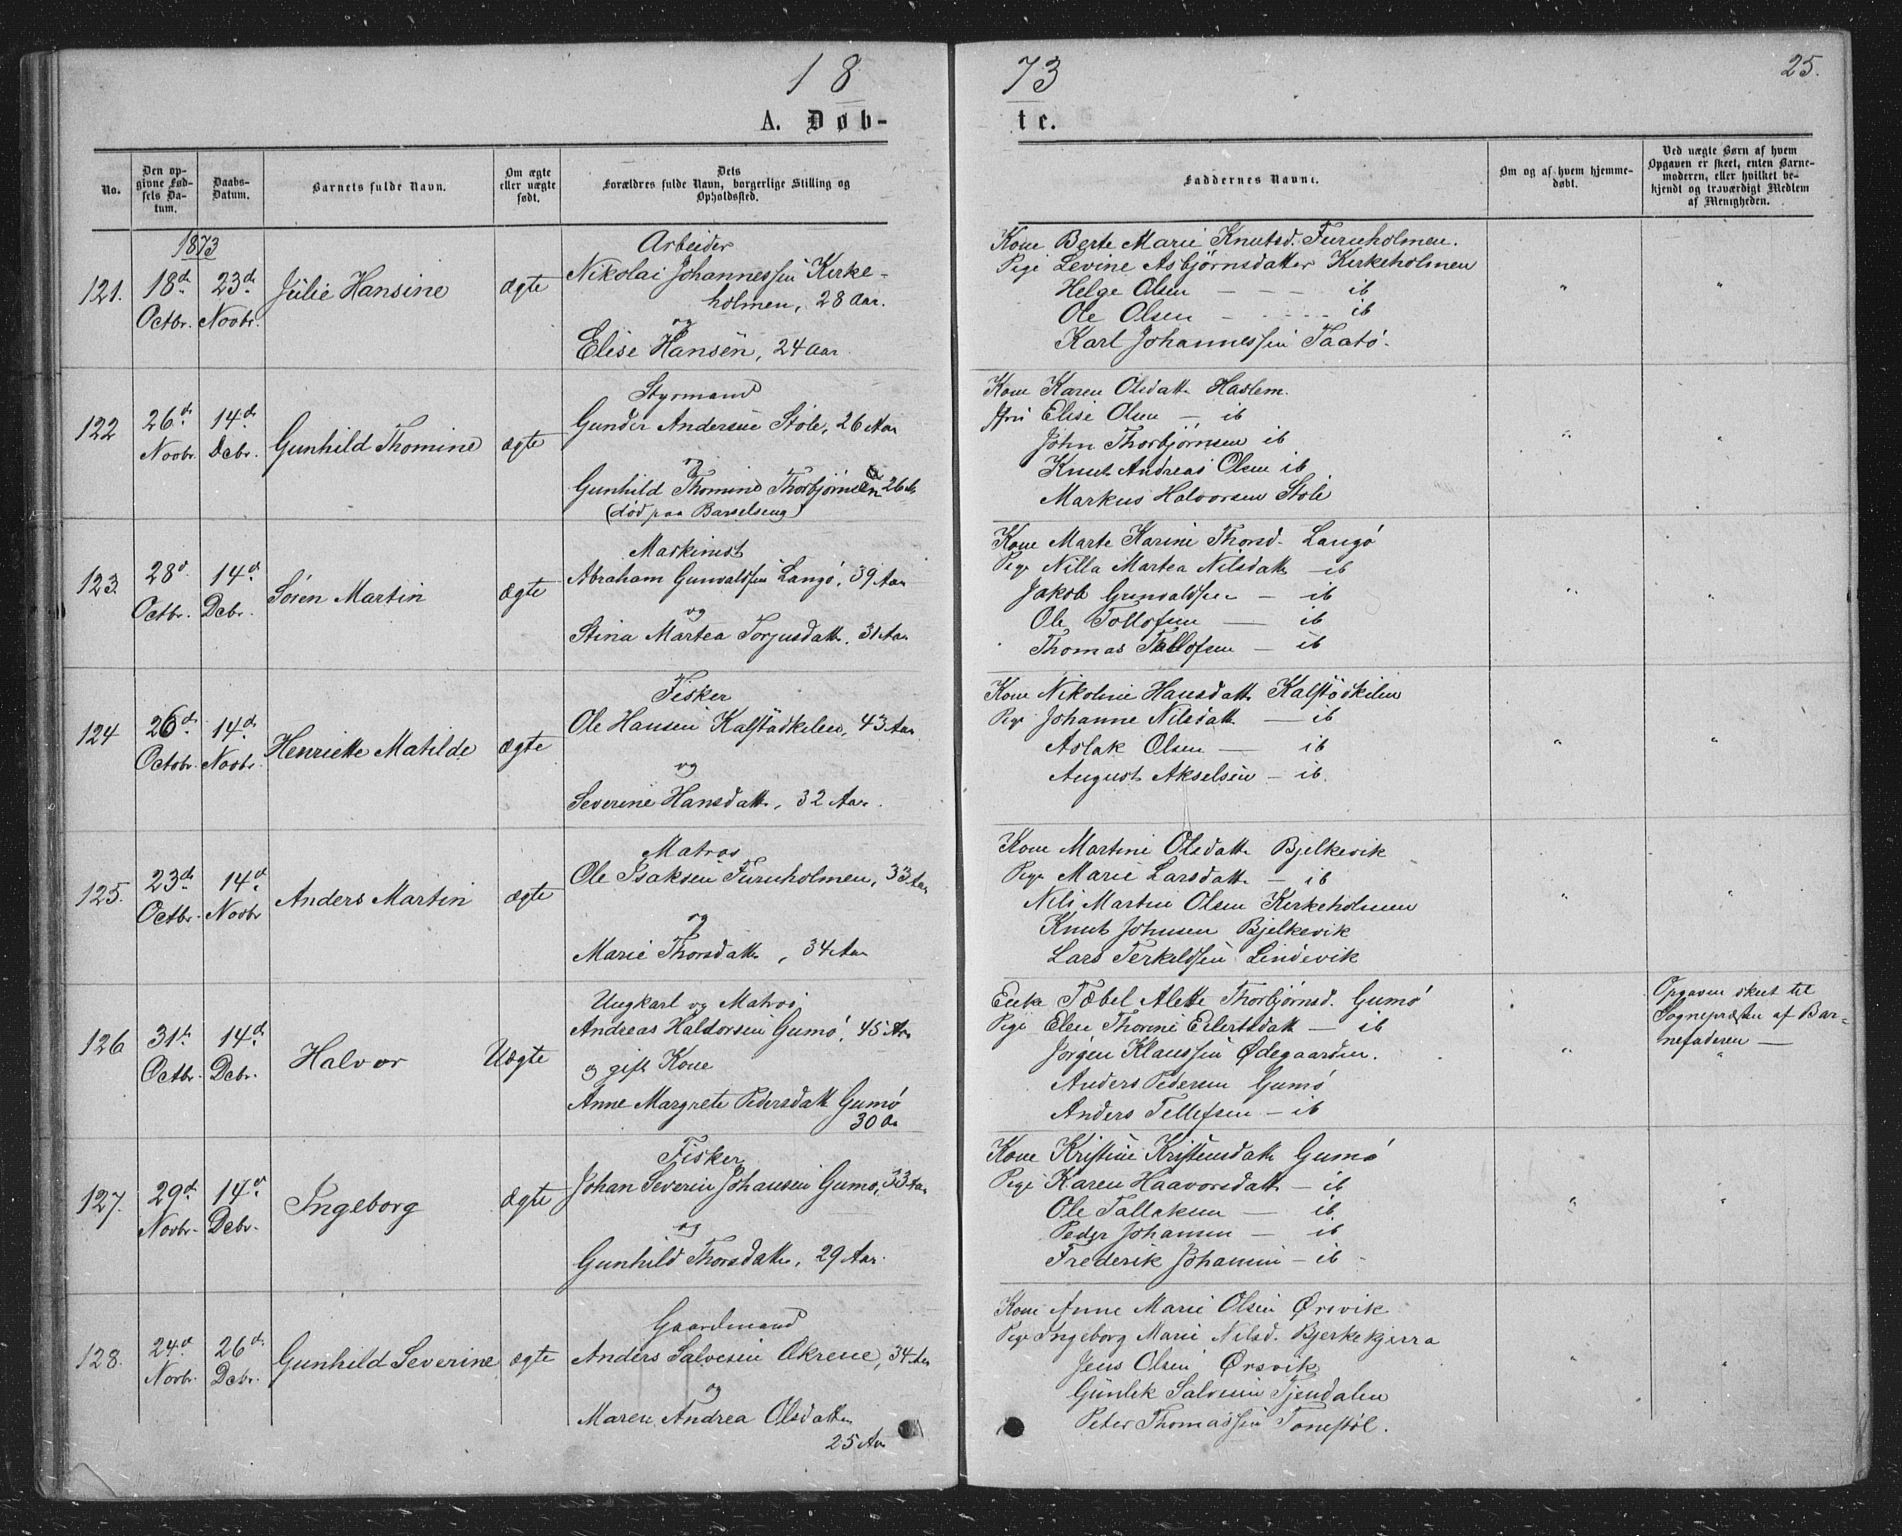 18
73
25.
A. Døb-
te.
No.
Den op-
givne Fød-
sels Da-
tum.
Daabs-
Datum.
Barnets fulde Navn.
Om ægte
eller uægte
født.
Dets
Forældres fulde Navn, borgerlige Stilling og
Opholdssted.
Faddernes Navne.
Om og af hvem hjemme-
døbt.
Ved uægte Børn af hvem
Opgaven er skeet, enten Barne-
moderen, eller hvilket be-
kjendt og troværdigt Medlem
af Menigheden.
1873
121. 18d Octbr. 23d Novbr. Julie Hansine ægte
Arbeider
Nikolai Johannessen Kirke-
holmen, 28 Aar.
og
Elise Hansen, 24 Aar.
Kone Berte Marie Knutsd. Furuholmen.
Pige Levine Asbjørnsdatter Kirkeholmen
Helge Olsen - - - ib
Ole Olsen - - - ib
Karl Johannessen Taatø.
122 26d Novbr. 14d Dcbr. Gunhild Thomine ægte
Styrmand
Gunder Andersen Stole, 26 Aar
og
Gunhild Thomine Thorbjørnsen 26 A
(død paa Barselseng)
Kone Karen Olsdatt. Haslem.
Elise Olsen - ib
John Thorbjørnsen ib
Knut Andreas Olsen ib
Markus Halvorsen Stole
123. 28d Octbr. 14d Dcbr. Søren Martin ægte
Maskinist
Abraham Gunvaldsen Langø, 39 Aar
og
Stina Martea Torjusdatt. 31 Aar
Kone Marte Karine Thorsd. Langø
Pige Nilla Martea Nilsdatt - ib
Jakob Gunvaldsen - ib
Ole Tollofsen - ib
Thomas Tollofsen - ib
124 26d Octobr. 14d Novbr. Henriette Matilde ægte
Fisker
Ole Hansen Kalstadkilen, 43 Aar
og
Severine Hansdatt, 32 Aar.
Kone Nikoline Hansdatt Kalstadkilen
Pige Johanne Nilsdatt - ib
Aslak Olsen - ib
August Akselsen - ib.
125. 23d Octbr. 14d Novbr Anders Martin ægte
Matros
Ole Isaksen Furuholmen, 33 Aar
og
Marie Thorsdatt, 34 Aar
Kone Martine Olsdatt Bjelkevik
Pige Marie Larsdatt - ib
Nils Martin Olsen Kirkeholmen
Knut Johnsen Bjelkevik
Lars Terkildsen Lindevik
126 31te Octbr. 14d Dcbr. Halvor Uægte
Ungkarl og Matros
Andreas Haldorsen Gumø, 45 Aar
og gift Kone
Anne Margrete Pedersdatt Gumø
30 Aa
Enke Tæbel Alette Thorbjørnsd. Gumø
Pige Elen Thorine Eilertsdatt - ib
Jørgen Klaussen Ødegaarden.
Anders Pedersen Gumø
Anders Tellefsen - ib
Opgaven skeet til
Sognepræsten af Bar-
nefaderen -
127. 29d Novbr. 14d Dcbr. Ingeborg ægte
Fisker
Johan Severin Johansen Gumø, 33 Aar
og
Gunhild Thorsdatter, 29 Aar.
Kone Kristine Kristensdatt Gumø
Pige Karen Haavorsdatt - ib
Ole Tallaksen - ib
Peder Johansen - ib
Frederik Johansen - ib -
128. 24d Novbr. 26d Dcbr. Gunhild Severine ægte
Gaardmand
Anders Salvesen Okrene, 34 Aar
og
Maren Andrea Olsdatter
25 Aar
Kone Anne Marie Olsen Ørsvik
Pige Ingeborg Marie Nilsd. Bjerkekjerra
Jens Olsen Ørsvik
Gunlek Salvesen Tjendalen
Peter Thomassen Tonestøl.